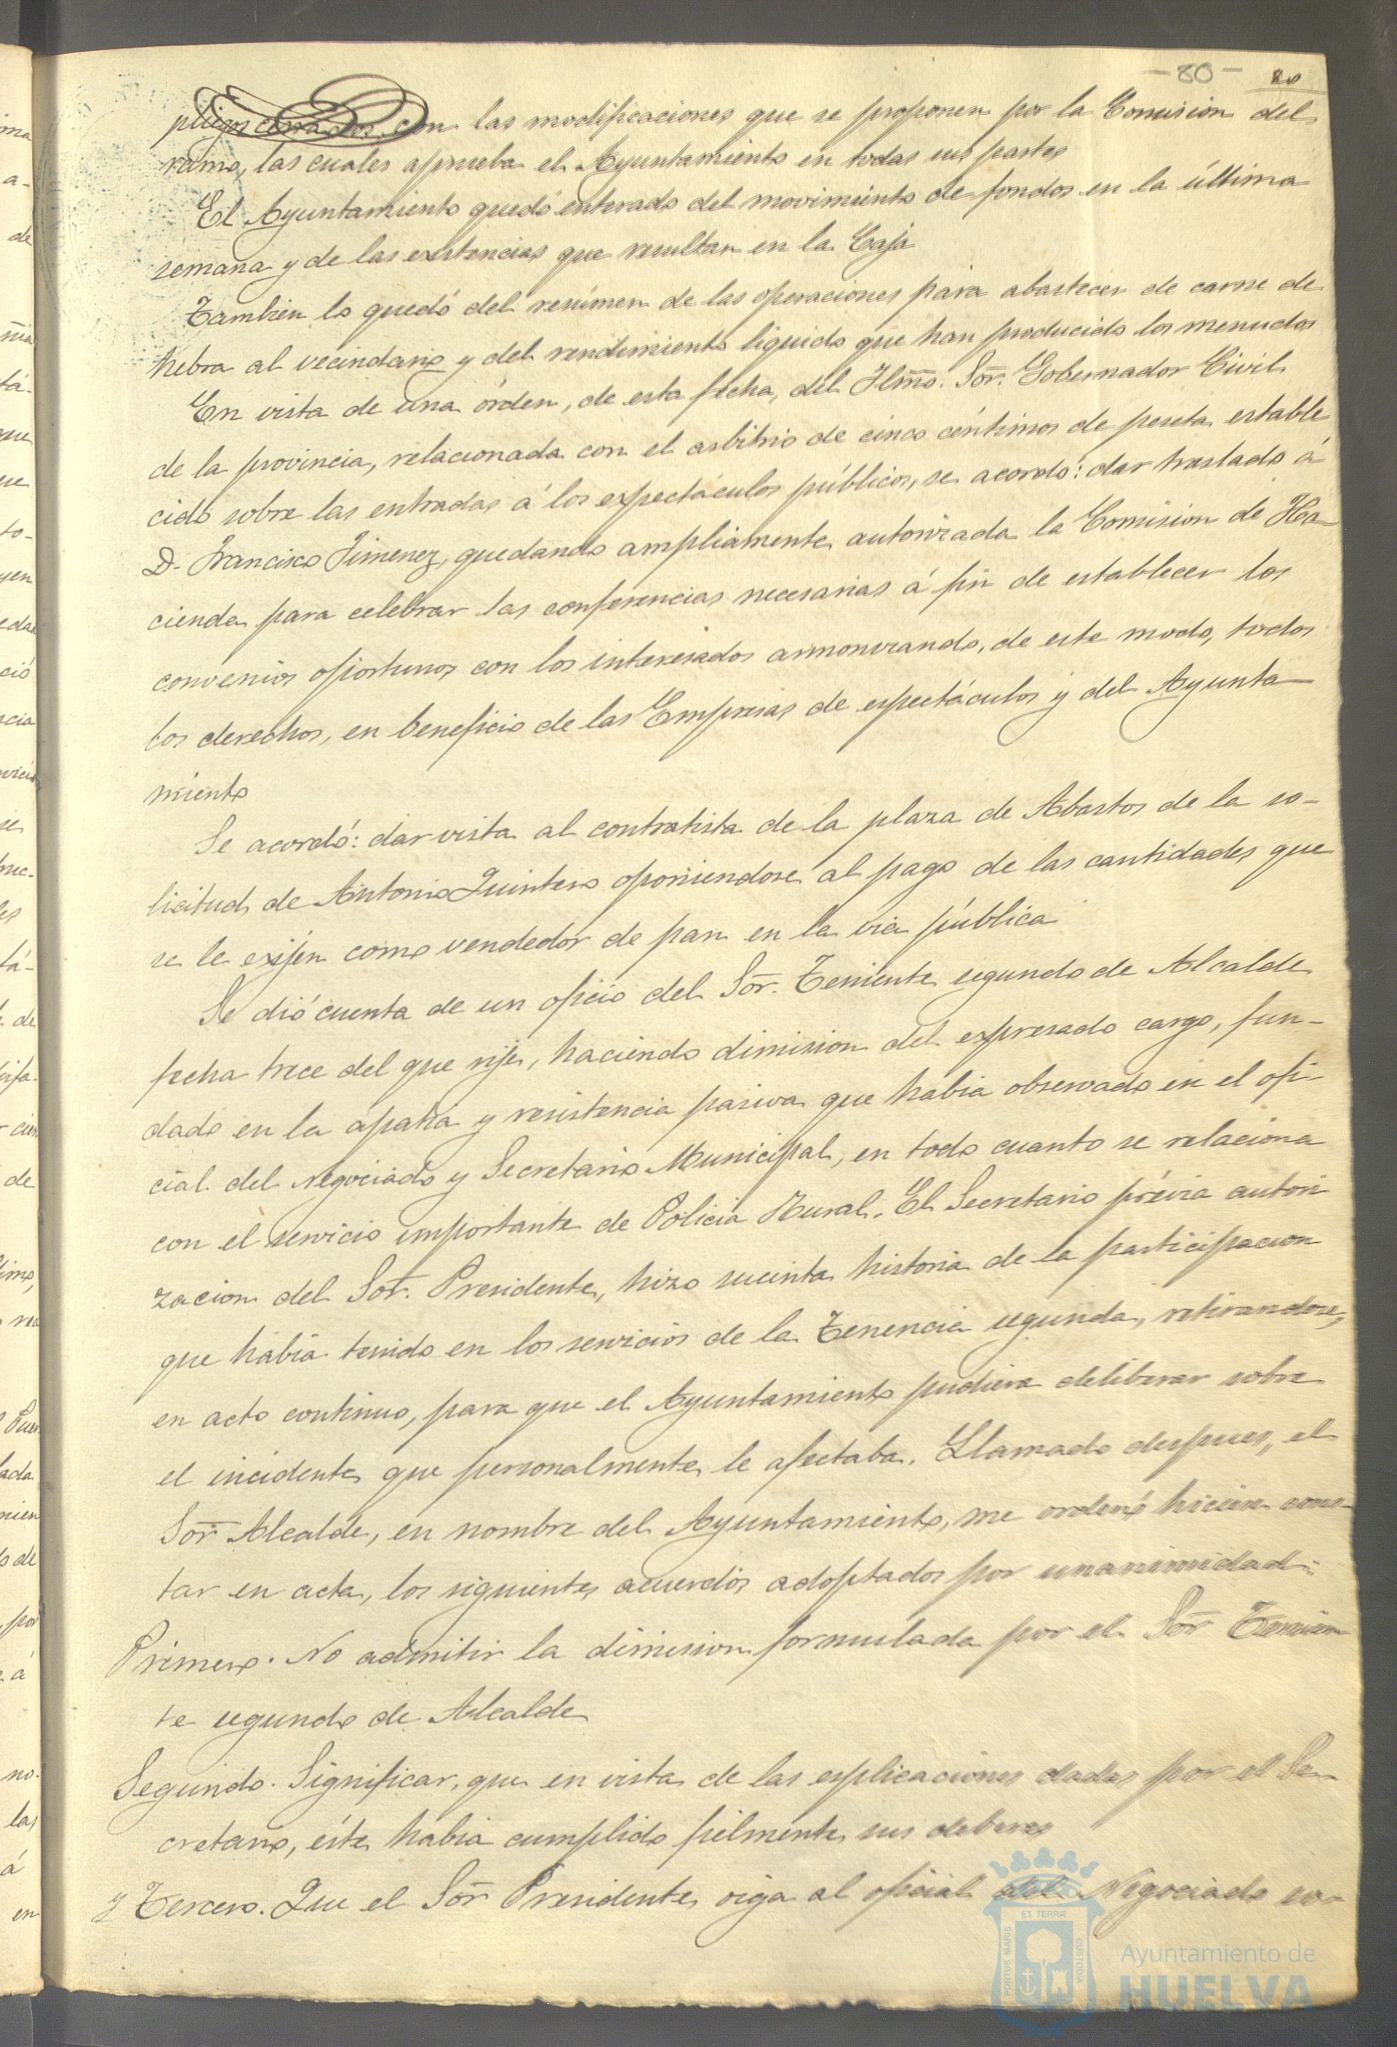 - 80 -
80
pliegos cerrados con las modificaciones que se proponen por la Comision del
ramo, las cuales aprueba el Ayuntamiento en todas sus partes
El Ayuntamiento quedó enterado del movimiento de fondos en la última
semana y de las existencias que resultan en la Caja
Tambien lo quedó del resúmen de las operaciones para abastecer de carne de
hebra al vecindario y del rendimiento liquido que han producido los menudos
En vista de una órden, de esta fecha, del Iltmo. Sor. Gobernador Civil
de la provincia, relacionada con el arbitrio de cinco céntimos de peseta estable
cido sobre las entradas á los espectáculos públicos, se acordó: dar traslado á
D. Francisco Jimenez, quedando ampliamente autorizada la Comision de Ha-
cienda para celebrar las conferencias necesarias á fin de establecer los
convenios oportunos con los interesados armonizando, de este modo, todos
los derechos, en beneficio de las Empresas de espectáculos y del Ayunta
miento
Se acordó: dar vista al contratista de la plaza de Abastos de la so-
licitud de Antonio Quintero oponiendose al pago de las cantidades que
se le exijen como vendedor de pan en la via pública
Se dió cuenta de un oficio del Sor. Teniente segundo de Alcalde
fecha trece del que rije, haciendo dimision del expresado cargo, fun-
dado en la apatia y resistencia pasiva que habia observado en el ofi-
cial del negociado y Secretario Municipal, en todo cuanto se relaciona
con el servicio importante de Policia Rural. El Secretario prévia autori
zacion del Sor. Presidente, hizo sucinta historia de la participacion
que habia tenido en los servicios de la Tenencia segunda, retirandose,
en acto continuo, para que el Ayuntamiento pudiera deliberar sobre
el incidente que personalmente le afectaba. Llamado despues, el
Sor Alcalde, en nombre del Ayuntamiento, me ordenó hiciera cons-
tar en acta, los siguientes acuerdos adoptados por unanimidad:
Primero. No admitir la dimision formulada por el Sor Tenien
te segundo de Alcalde
Segundo. Significar, que en vista de las esplicaciones dadas por el Se-
cretario, éste habia cumplido fielmente sus deberes
y Tercero. Que el Sor Presidente oiga al oficial del Negociado so-
PORTUS MARIS
ET TERRÆ
CUSTODIA
Ayuntamiento de
HUELVA